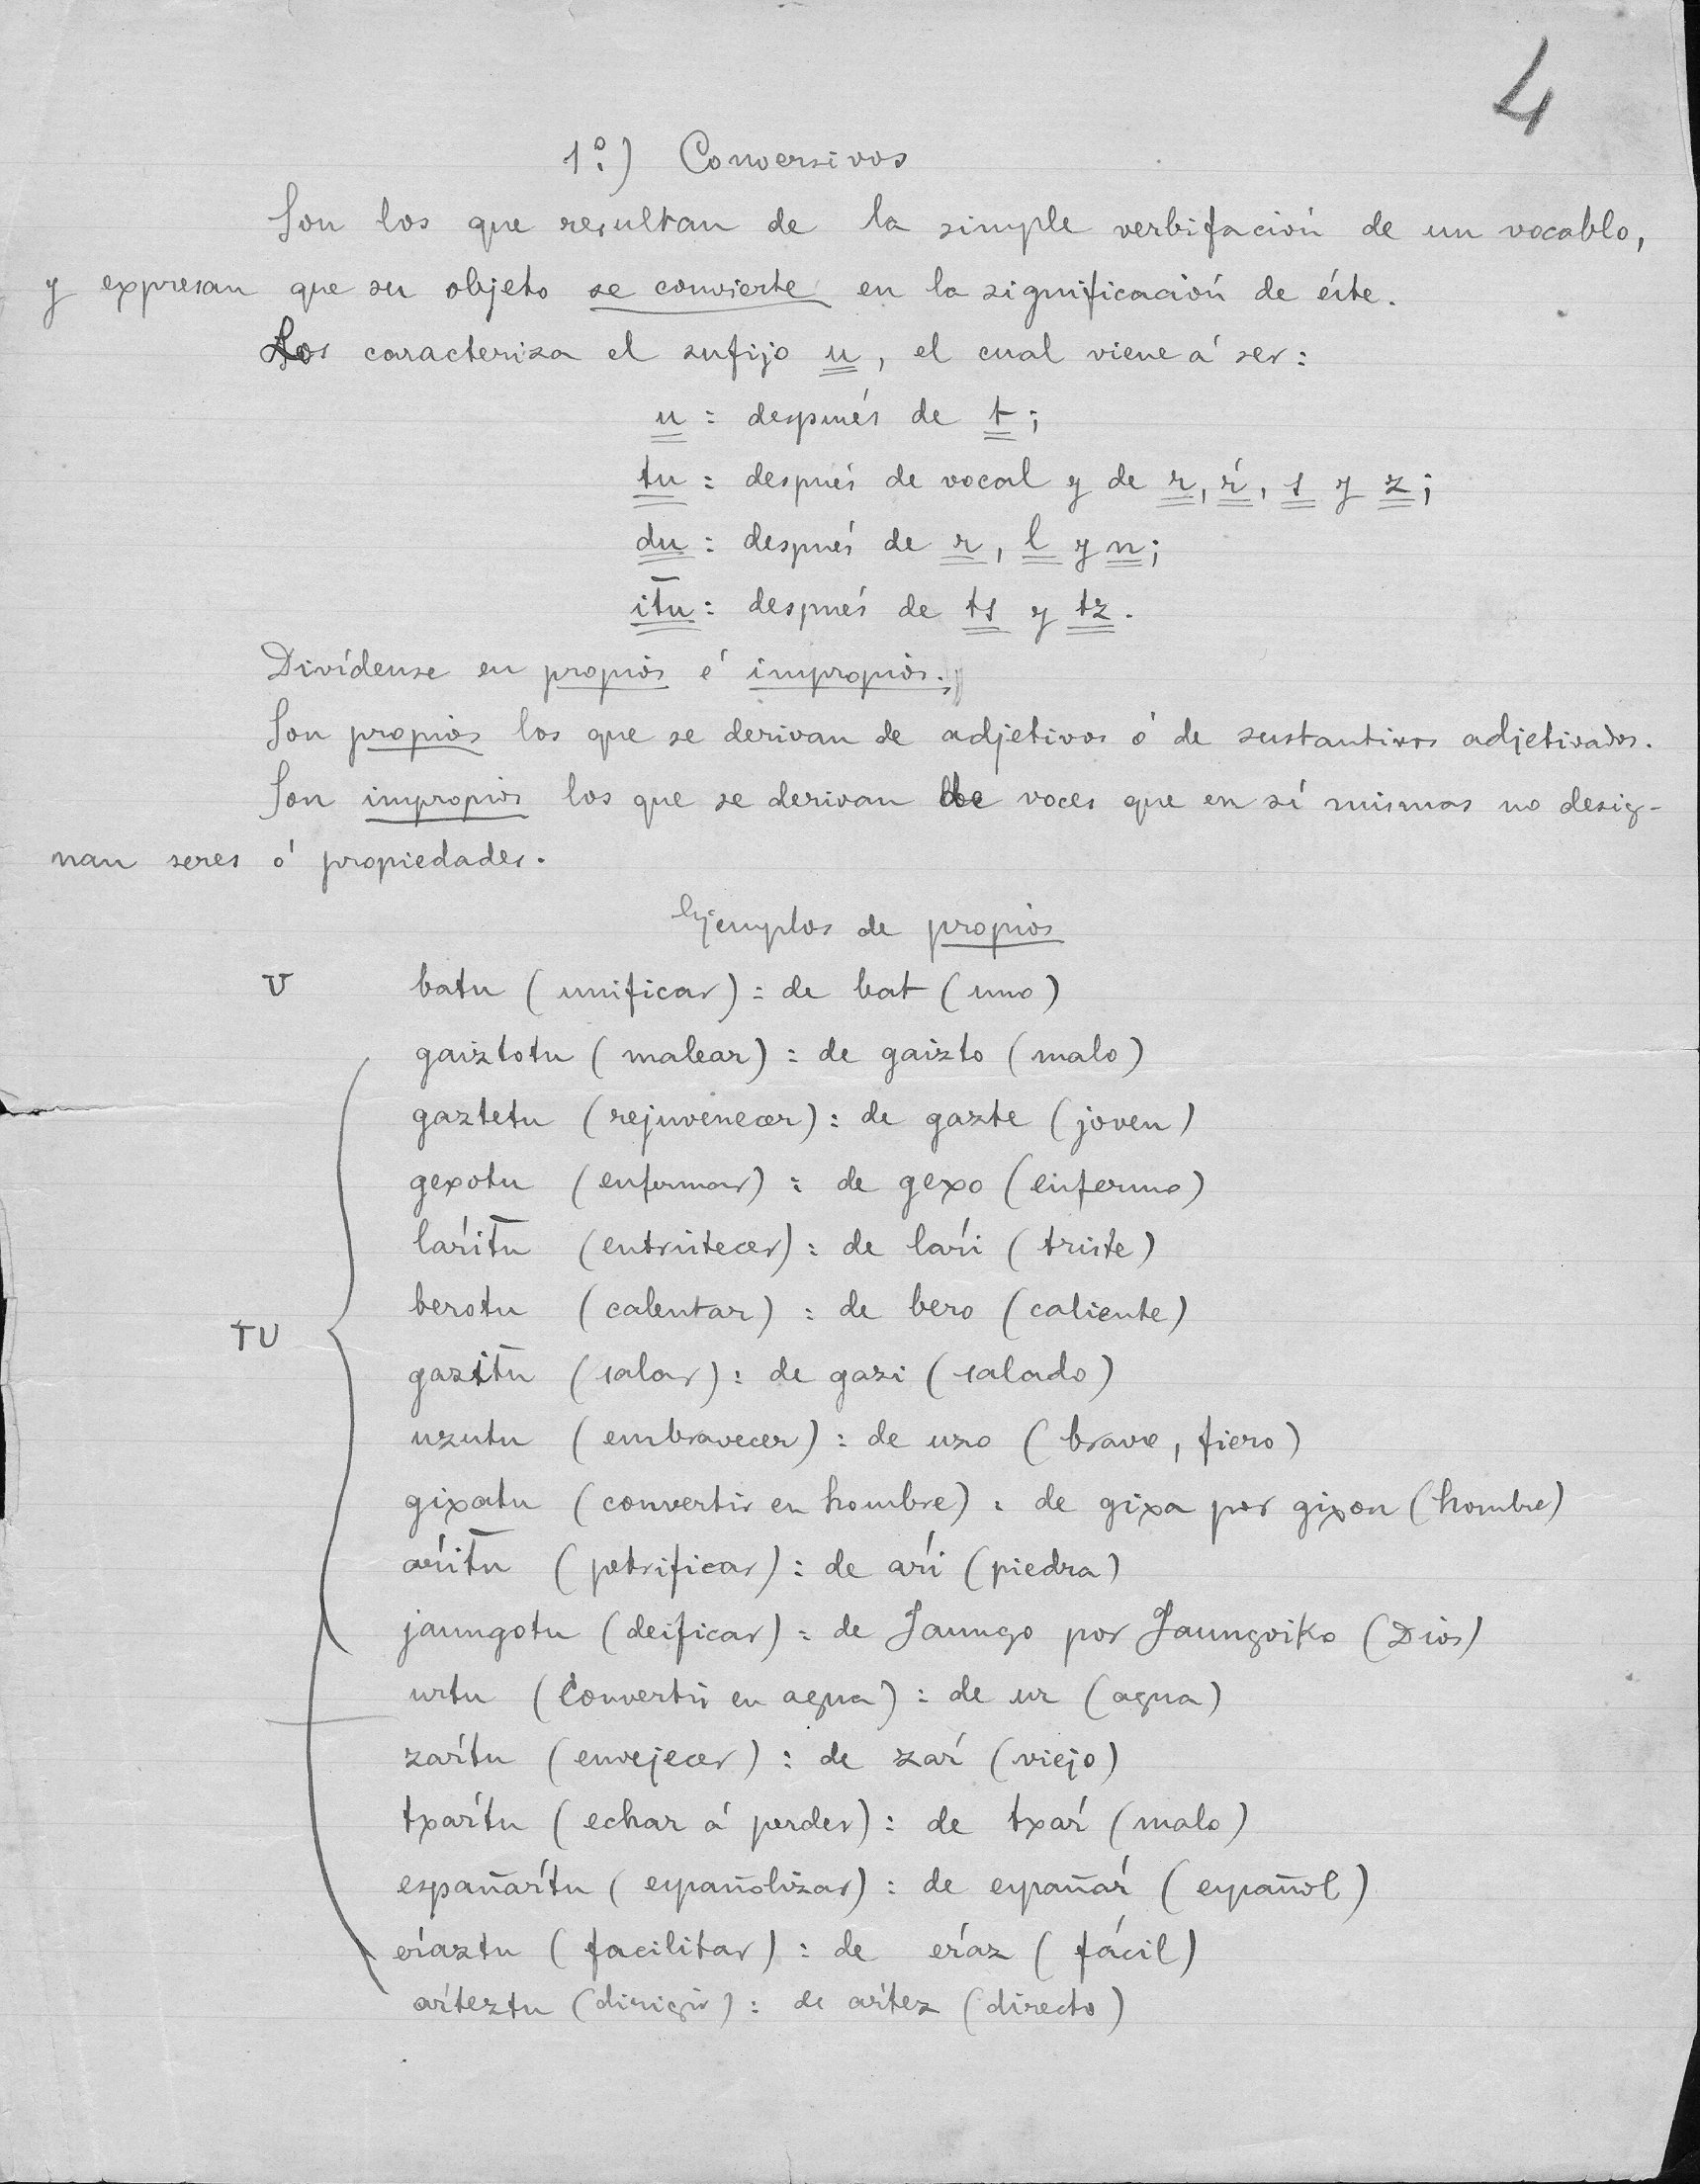 4
1º.) Conversivos
Son los que resultan de la simple verbifación de un vocablo,
y expresan que su objeto se convierte en la significación de éste.
Los caracteriza el sufijo u, el cual viene á ser:
u : después de t;
tu : después de vocal y de r, ŕ, s y z;
du : después de r, l y n;
it̄u : después de ts y tz.
Divídense en propios é impropios.
Son propios los que se derivan de adjetivos ó de sustantivos adjetivados.
Son impropios los que se derivan de voces que en sí mismas no desig-
nan seres ó propiedades.
Ejemplos de propios
U batu (unificar) : de bat (uno)
gaiztotu (malear) : de gaizto (malo)
gaztetu (rejuvenecer) : de gazte (joven)
gexotu (enfermar) : de gexo (enfermo)
laŕit̄u (entristecer) : de laŕi (triste)
TU berotu (calentar) : de bero (caliente)
gazit̄u (salar) : de gazi (salado)
uzutu (embravecer) : de uzo (bravo, fiero)
gixatu (convertir en hombre) : de gixa por gixon (hombre)
aŕit̄u (petrificar) : de aŕi (piedra)
jaungotu (deificar) : de Jaungo por Jaungoiko (Dios)
urtu (Convertir en agua) : de ur (agua)
zaŕtu (envejecer) : de zaŕ (viejo)
txaŕtu (echar á perder) : de txaŕ (malo)
españaŕtu (españolizar) : de españaŕ (español)
eŕaztu (facilitar) : de eŕaz (fácil)
aŕteztu (dirigir) : de aŕtez (directo)